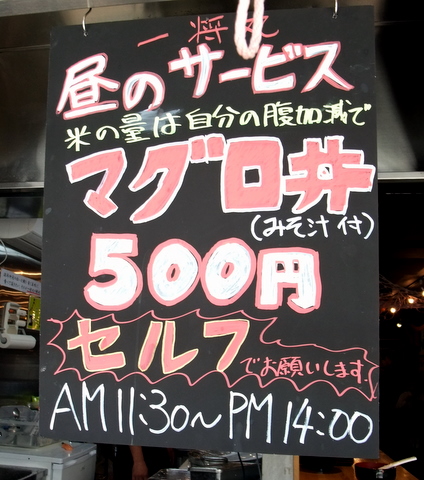 一将丸
昼のサービス
米の量は自分の腹加減で
マグロ丼
(みそ汁付)
500円
セルフでお願いします
AM11:30~PM14:00